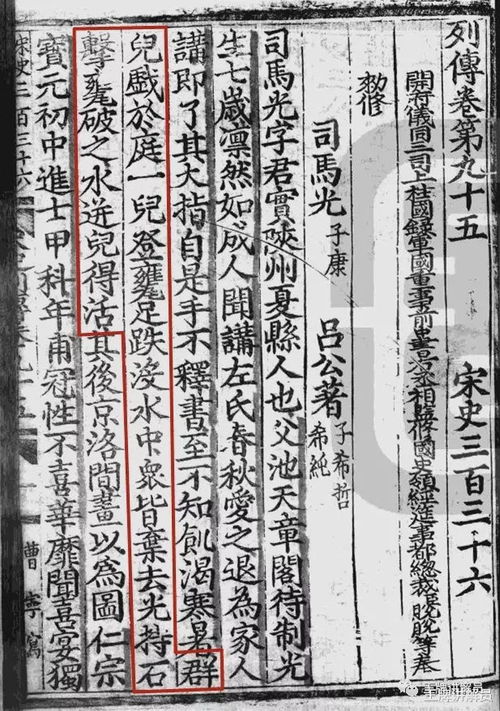 列傳卷第九十五 宋史三百三十六
開府儀同三司上柱國錄軍國重事前中書右丞相監修國史領經筵事都總裁脫脫等奉
勑修
司馬光 子康 呂公著 子希哲 希純
司馬光字君實陝州夏縣人也父池天章閣待制光
生七歲凛然如成人聞講左氏春秋愛之退為家人
講即了其大指自是手不釋書至不知飢渴寒暑群
兒戲於庭一兒登甕足跌没水中衆皆棄去光持石
擊甕破之水迸兒得活其後京洛間畫以爲圖仁宗
寶元初中進士甲科年甫冠性不喜華靡聞喜宴獨
宋史三百三十六